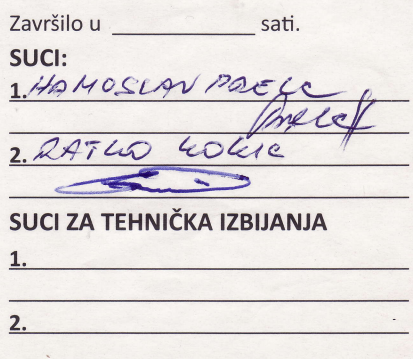 Završilo u ____________ sati.
SUCI:
1. HAMOSLAV PRELC
2. RATKO KOKIC
SUCI ZA TEHNIČKA IZBIJANJA
1.
2.